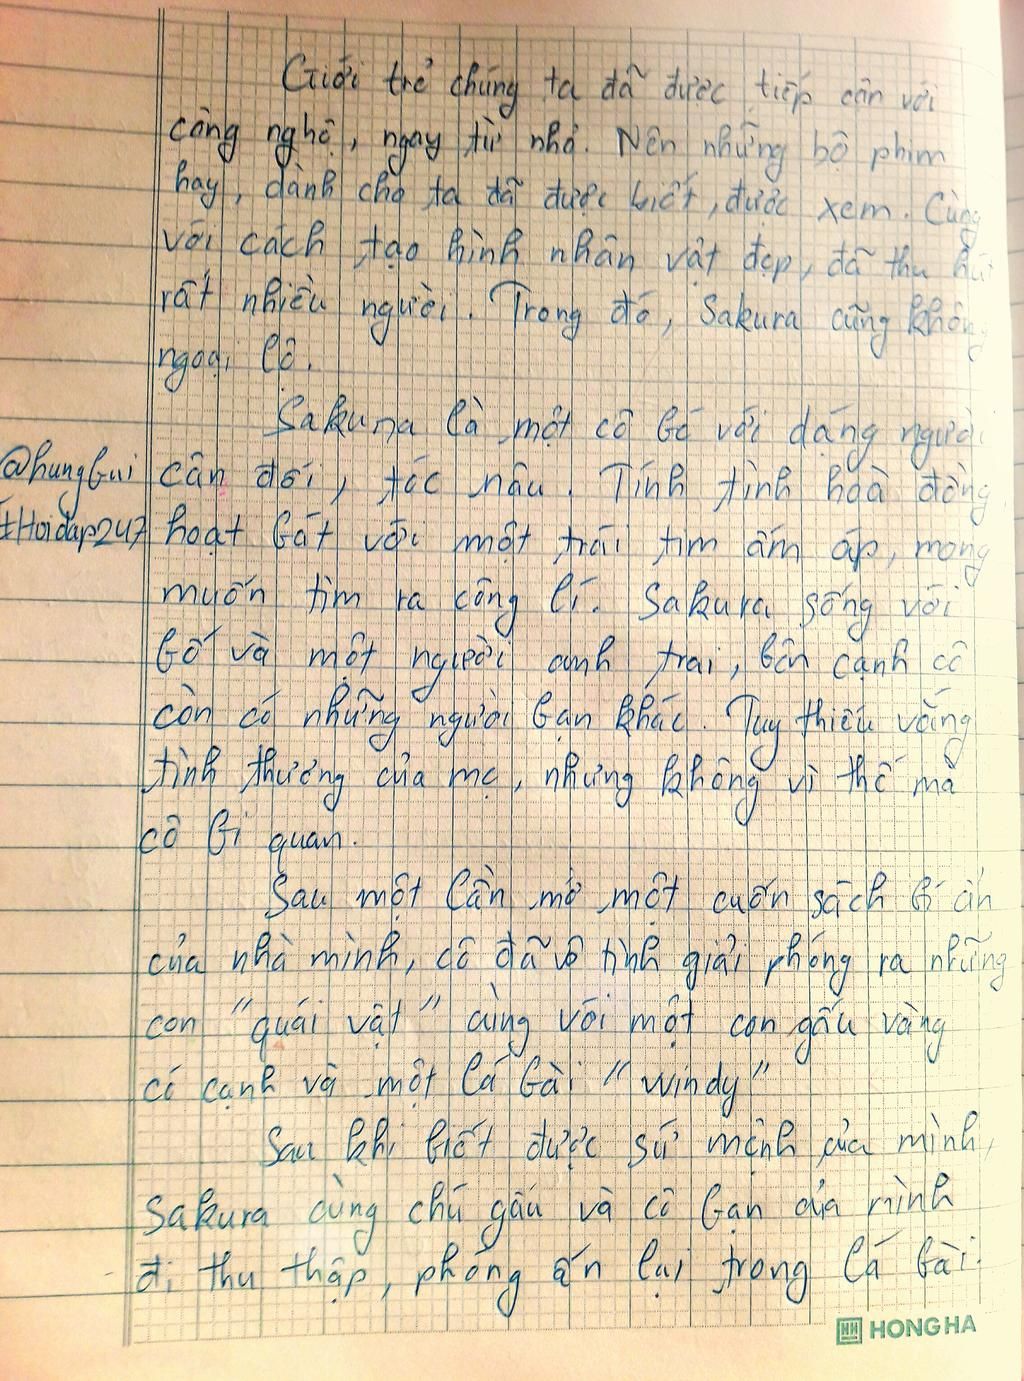 Giới trẻ chúng ta đã được tiếp cận với
công nghệ, ngay từ nhỏ. Nên những bộ phim
hay, dành cho ta đã được biết, được xem. Cùng
với cách tạo hình nhân vật đẹp, đã thu hút
rất nhiều người. Trong đó, Sakura cũng không
ngoại lệ.
Sakura là một cô bé với dáng người
cân đối, tóc nâu. Tính tình hoà đồng
@hungbui
#Hoidap247
hoạt bát với một trái tim ấm áp, mong
muốn tìm ra công lí. Sakura sống với
bố và một người anh trai, bên cạnh cô
còn có những người bạn khác. Tuy thiếu vắng
tình thương của mẹ, nhưng không vì thế mà
cô bi quan.
Sau một lần mở một cuốn sách bí ẩn
của nhà mình, cô đã vô tình giải phóng ra những
con "quái vật" cùng với một con gấu vàng
có cạnh và một lá bài "windy"
Sau khi biết được sứ mệnh của mình,
Sakura cùng chú gấu và cô bạn của mình
đi thu thập, phong ấn lại trong lá bài.
HONG HA